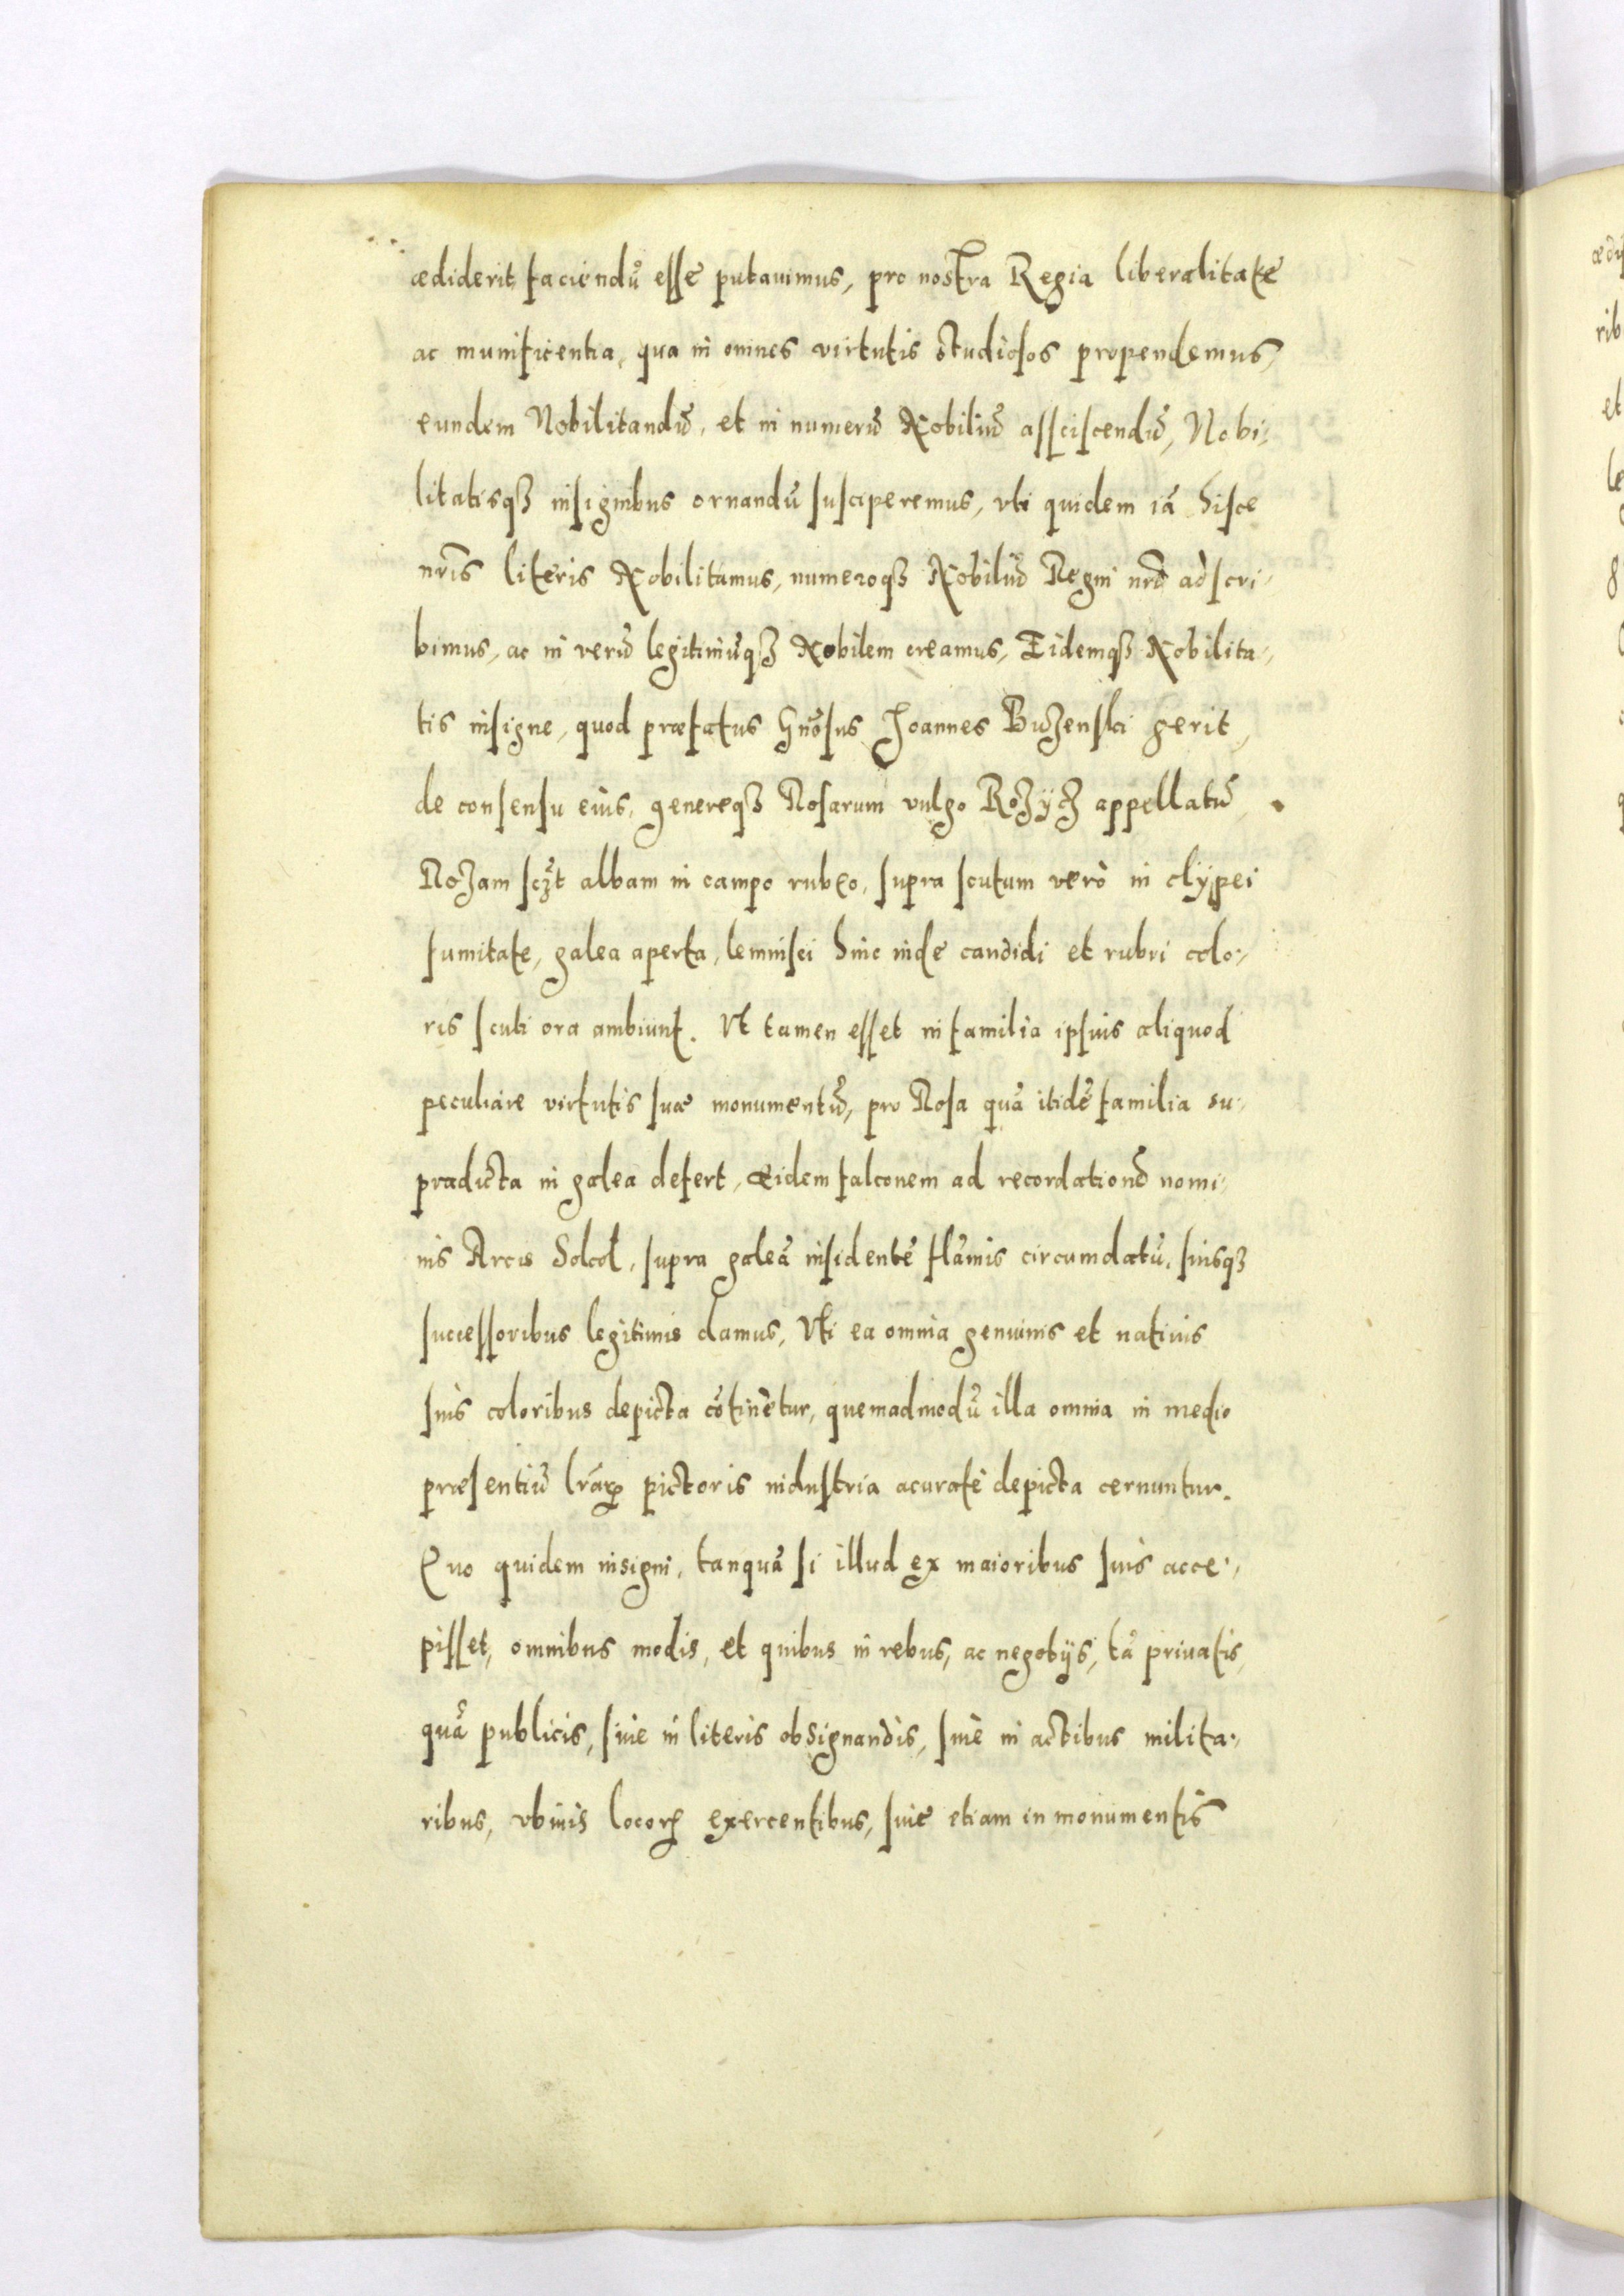 ædiderit, faciendũ esse putauimus, pro nostra Regia liberalitate
ac munificentia, qua in omnes virtutis studiosos propendemus,
eundem Nobilitandũ, et in numerũ Nobiliũ assciscendũ, Nobi-
litatisqȝ insignibus ornandũ susciperemus, vti quidem iã hisce
nr̃is literis Nobilitamus, numeroqȝ Nobiliũ Regni nr̃i adscri-
bimus, ac in verũ legitimũqȝ Nobilem creamus, Eidemqȝ Nobilita-
tis insigne, quod præfatus Gñosus Joannes Buzenski gerit,
de consensu eius, genereqȝ Rosarum vulgo Rozÿcz appellatũ,
Rozam sczt albam in campo rubeo, supra scutum verò in clÿpei
sumitate, galea aperta, lemnisci hinc inde candidi et rubri colo-
ris scuti ora ambiunt. Vt tamen esset in familia ipsius aliquod
peculiare virtutis suæ monumentũ, pro Rosa quã itidẽ familia su-
pradicta in galea defert, eidem falconem ad recordationẽ nomi-
nis Arcis Sokol, supra galeã insidentẽ flãmis circumdatũ, suisqȝ
successoribus legitimis damus, Vti ea omnia genuinis et natiuis
suis coloribus depicta cõtinẽtur, quemadmodũ illa omnia in medio
præsentiũ lr̃aꝝ pictoris industria acuratè depicta cernuntur.
Quo quidem insigni, tanquã si illud ex maioribus suis acce-
pisset, omnibus modis, et quibus in rebus, ac negotijs, tã priuatis,
quã publicis, siue in literis obsignandis, siue in actibus milita-
ribus, vbiuis locoꝝ exercentibus, siue etiam in monumentis